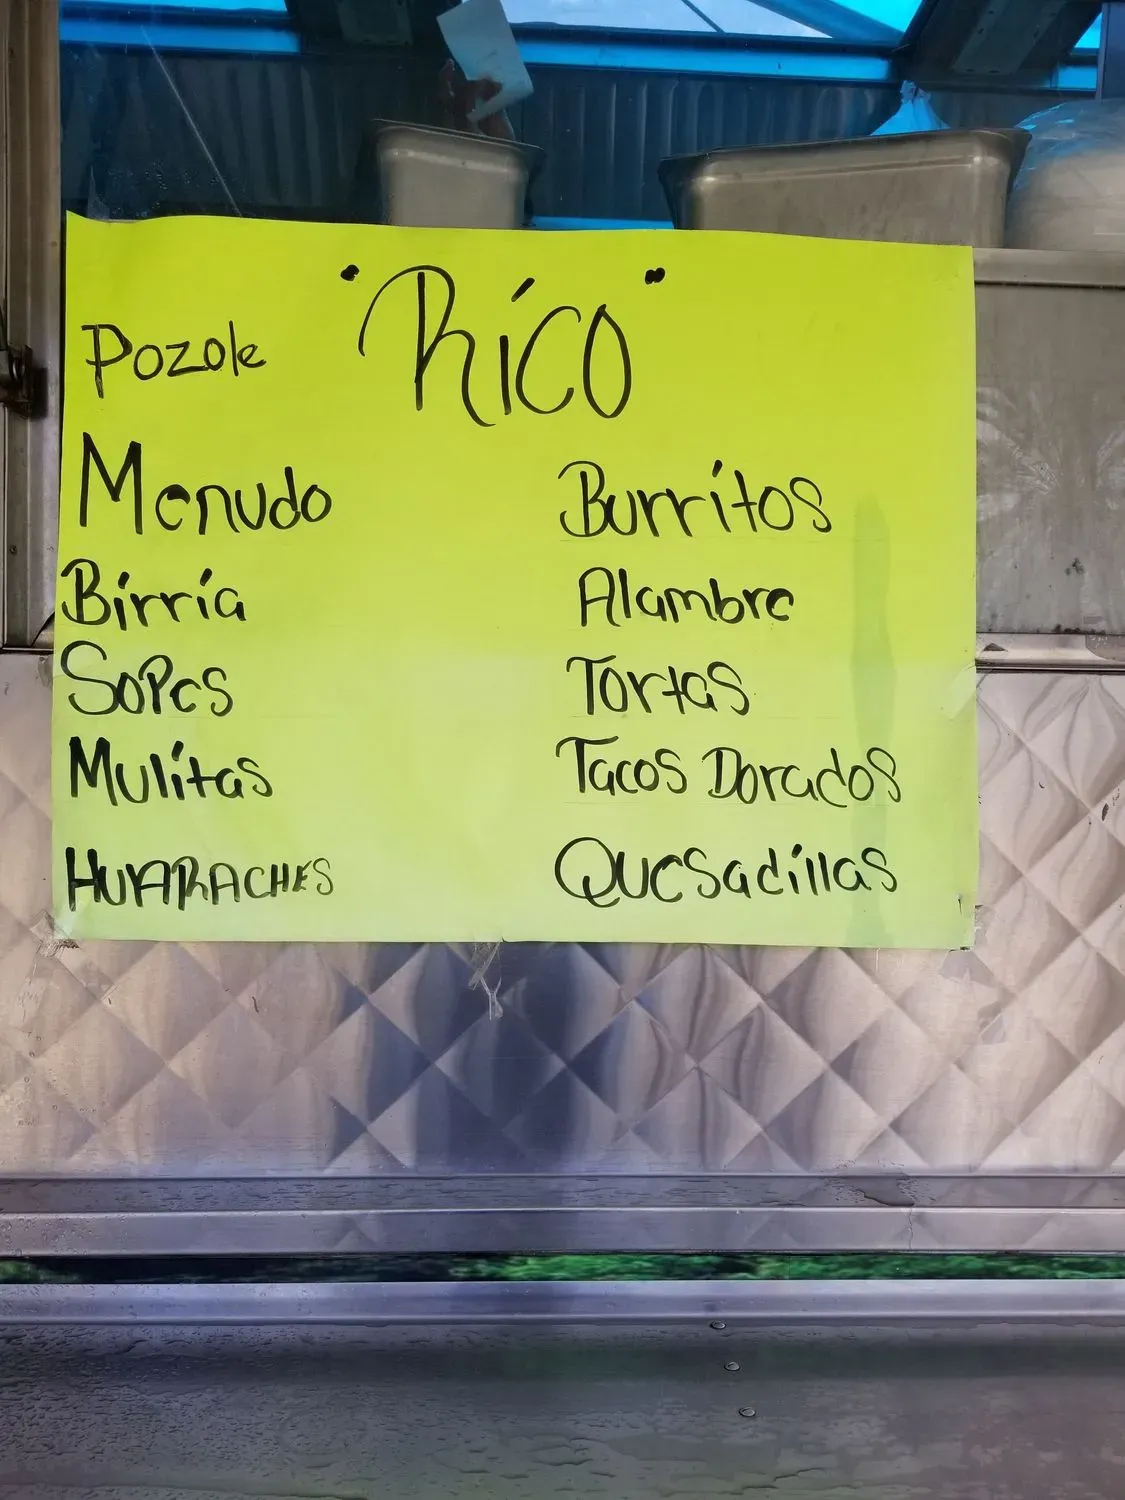 "Rico"
Pozole
Menudo
Birria
Sopes
Mulitas
HUARACHES
Burritos
Alambre
Tortas
Tacos Dorados
Quesadillas